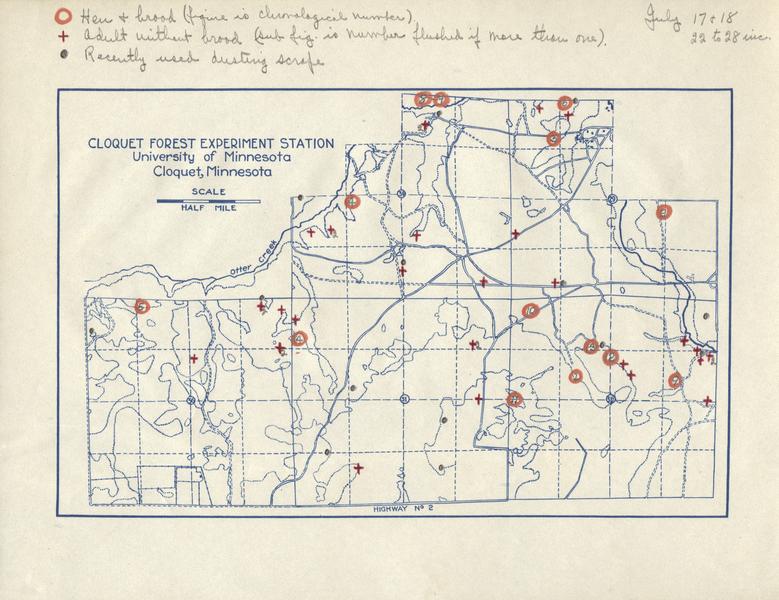 Hen & brood (figure is chronological number).
July 17 & 18
Adult without brood (sub fig. is number flushed if more than one).
22 to 28 inc.
Recently used dusting scrape
CLOQUET FOREST EXPERIMENT STATION
University of Minnesota
Cloquet, Minnesota
SCALE
HALF MILE
Otter Creek
HIGHWAY Nº 2